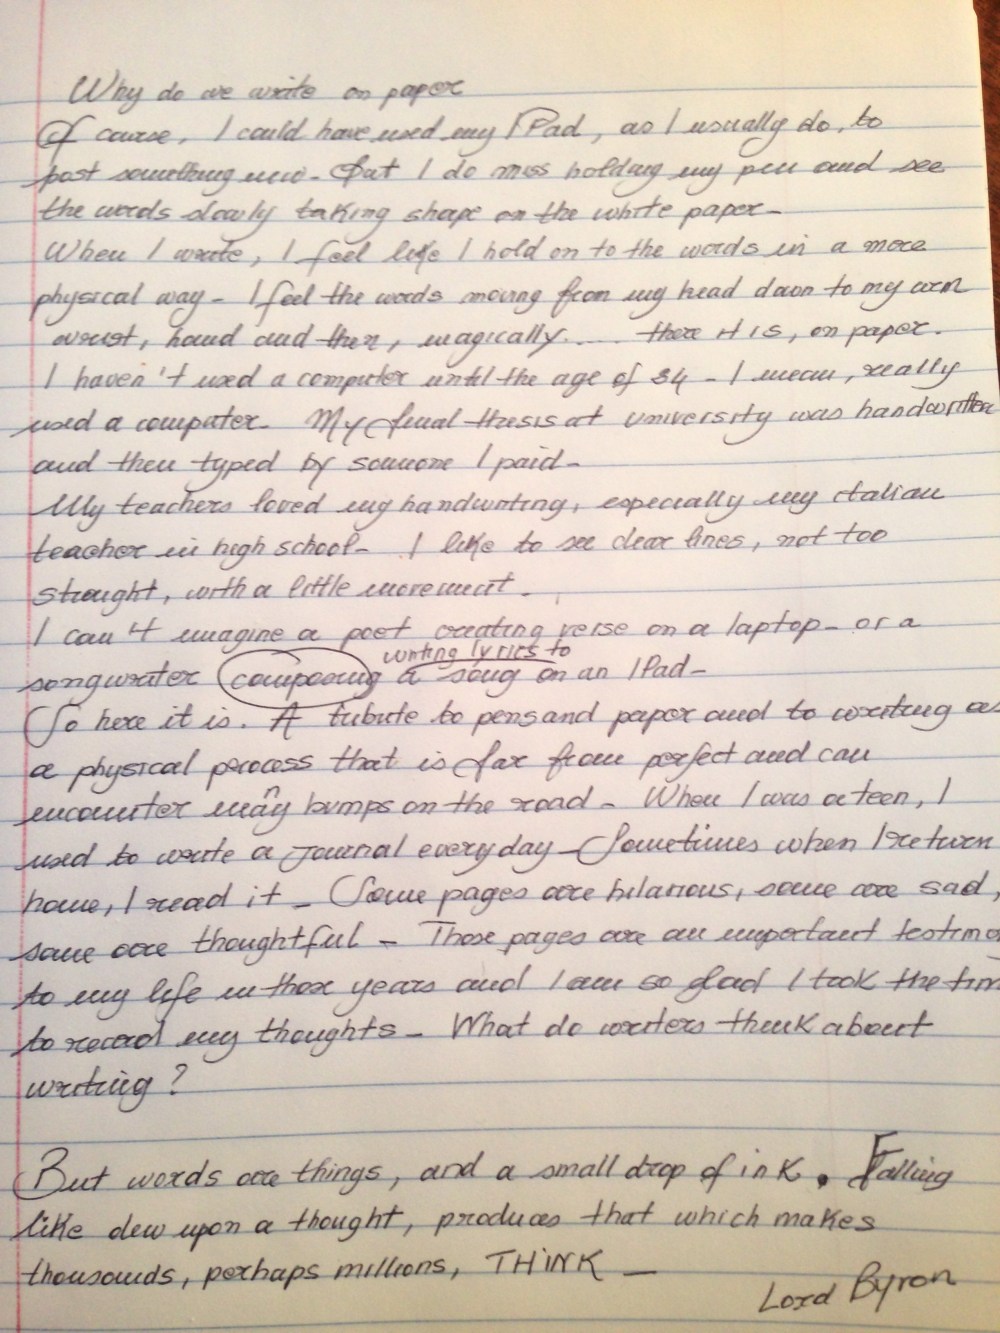 Why do we write on paper
Of course, I could have used my IPad, as I usually do, to
post something new - But I do miss holding my pen and see
the words slowly taking shape on the white paper -
When I write, I feel like I hold on to the words in a more
physical way - I feel the words moving from my head down to my arm
wrist, hand and then, magically..... there it is, on paper.
I haven't used a computer until the age of 34 - I mean, really
used a computer - My final thesis at university was handwritten
and then typed by someone I paid -
My teachers loved my handwriting, especially my Italian
teacher in high school - I like to see clear lines, not too
straight, with a little movement.
I can't imagine a poet creating verse on a laptop - or a
writing lyrics to
songwriter composing a song on an IPad -
So here it is. A tribute to pens and paper and to writing as
a physical process that is far from perfect and can
encounter many bumps on the road - When I was a teen, I
used to write a journal everyday - Sometimes when I return
home, I read it - Some pages are hilarious, some are sad,
some are thoughtful - Those pages are an important testimo
to my life in those years and I am so glad I took the tim
to record my thoughts - What do writers think about
writing?
But words are things, and a small drop of ink. Falling
like dew upon a thought, produces that which makes
thousands, perhaps millions, THINK -
Lord Byron